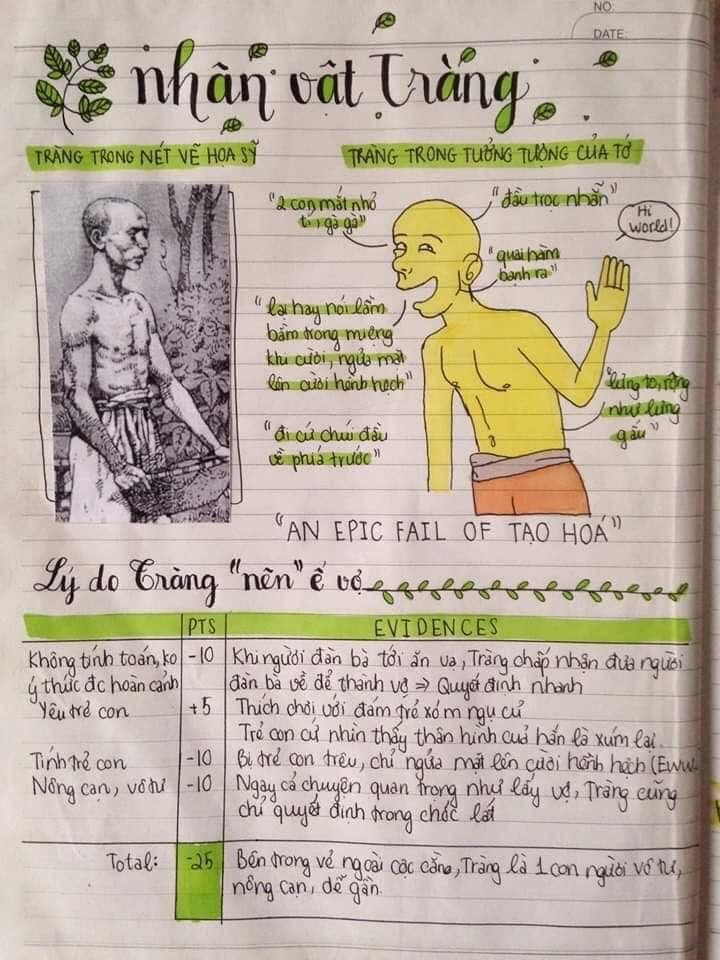 NO.
DATE:
nhân vật Tràng
TRÀNG TRONG NÉT VẼ HỌA SỸ
TRÀNG TRONG TƯỞNG TƯỢNG CỦA TỚ
"2 con mắt nhỏ
tí, gà gà"
"đầu trọc nhẵn"
Hi
World!
"quai hàm
bạnh ra"
"lại hay nói lầm
bầm trong miệng
khi cười, ngửa mặt
lên cười hềnh hệch"
"lưng to, rộng
như lưng
gấu"
"đi cứ chúi đầu
về phía trước"
"AN EPIC FAIL OF TẠO HOÁ"
Lý do Tràng "nên" ế vợ
PTS EVIDENCES
Không tính toán, ko -10 Khi người đàn bà tới ăn vạ, Tràng chấp nhận đưa người
ý thức đc hoàn cảnh đàn bà về để thành vợ => Quyết định nhanh
Yêu trẻ con +5 Thích chơi với đám trẻ xóm ngụ cư
Trẻ con cứ nhìn thấy thân hình của hắn là xúm lại.
Tính trẻ con -10 Bị trẻ con trêu, chỉ ngửa mặt lên cười hềnh hệch (Eww
Nông cạn, vô tư -10 Ngay cả chuyện quan trọng như lấy vợ, Tràng cũng
chỉ quyết định trong chốc lát
Total: -25 Bên trong vẻ ngoài cộc cằn, Tràng là 1 con người vô tư,
nông cạn, dễ gần.